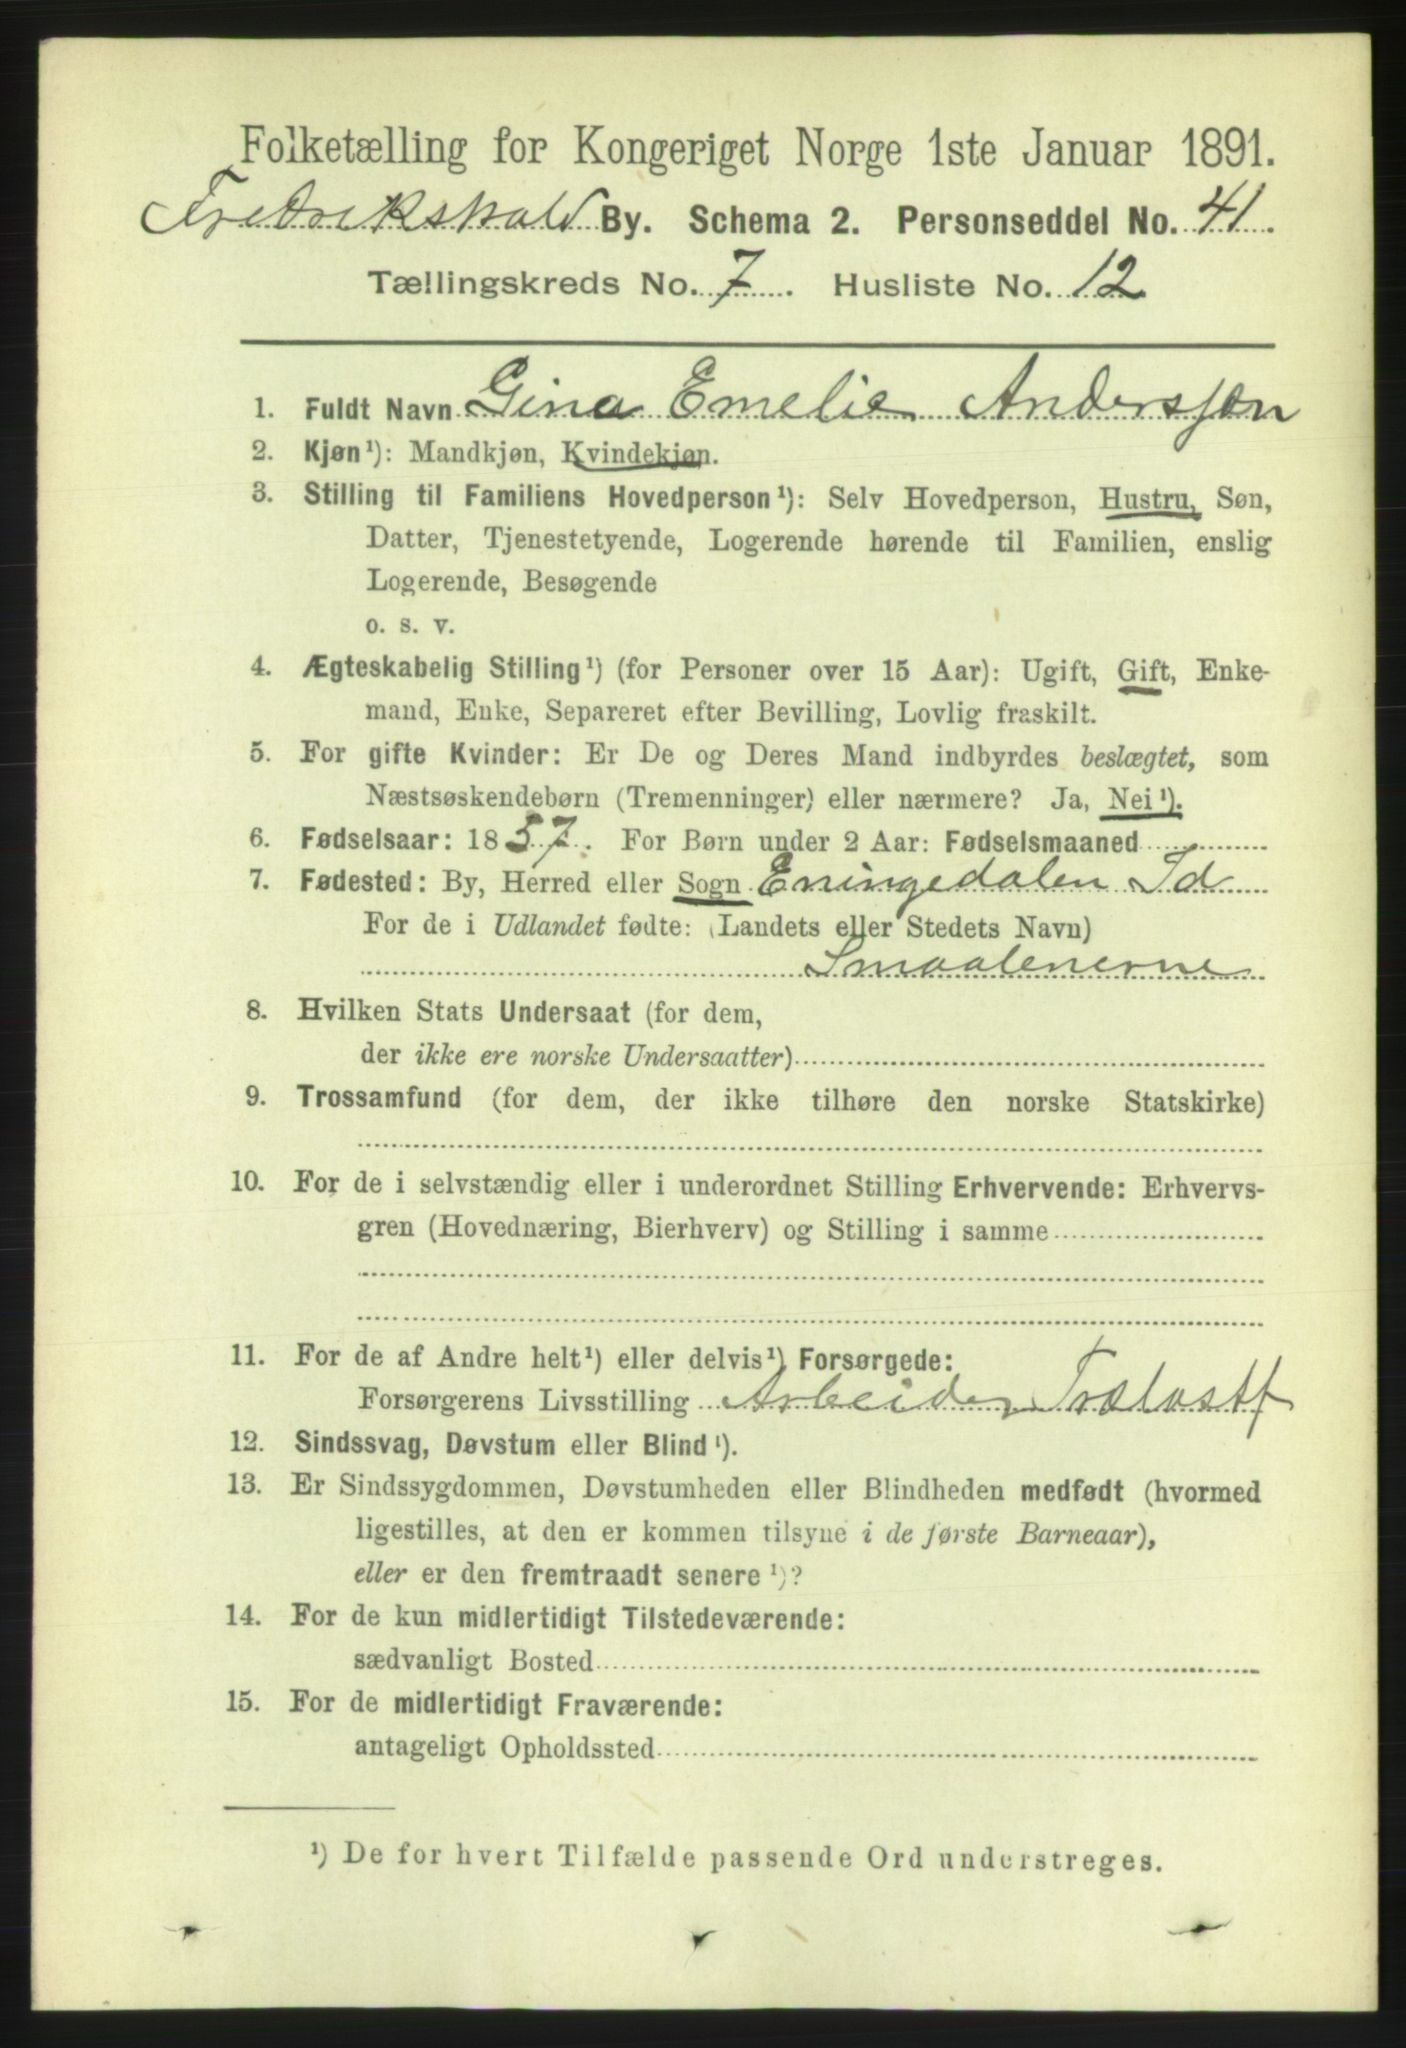 Folketælling for Kongeriget Norge 1ste Januar 1891.
Fredrikshald By. Schema 2. Personseddel No. 41.
Tællingskreds No. 7. Husliste No. 12
1. Fuldt Navn Gina Emelie Andersjon
2. Kjøn¹): Mandkjøn, Kvindekjøn.
3. Stilling til Familiens Hovedperson¹): Selv Hovedperson, Hustru, Søn,
Datter, Tjenestetyende, Logerende hørende til Familien, enslig
Logerende, Besøgende
o. s. v.
4. Ægteskabelig Stilling¹) (for Personer over 15 Aar): Ugift, Gift, Enke-
mand, Enke, Separeret efter Bevilling, Lovlig fraskilt.
5. For gifte Kvinder: Er De og Deres Mand indbyrdes beslægtet, som
Næstsøskendebørn (Tremenninger) eller nærmere? Ja, Nei¹).
6. Fødselsaar: 1857. For Børn under 2 Aar: Fødselsmaaned
7. Fødested: By, Herred eller Sogn Eningedalen Id
For de i Udlandet fødte: (Landets eller Stedets Navn)
Smaalenerne
8. Hvilken Stats Undersaat (for dem,
der ikke ere norske Undersaatter)
9. Trossamfund (for dem, der ikke tilhøre den norske Statskirke)
10. For de i selvstændig eller i underordnet Stilling Erhvervende: Erhvervs-
gren (Hovednæring, Bierhverv) og Stilling i samme
11. For de af Andre helt¹) eller delvis¹) Forsørgede:
Forsørgerens Livsstilling Arbeider Trælastf
12. Sindssvag, Døvstum eller Blind¹).
13. Er Sindssygdommen, Døvstumheden eller Blindheden medfødt (hvormed
ligestilles, at den er kommen tilsyne i de første Barneaar),
eller er den fremtraadt senere¹)?
14. For de kun midlertidigt Tilstedeværende:
sædvanligt Bosted
15. For de midlertidigt Fraværende:
antageligt Opholdssted
¹) De for hvert Tilfælde passende Ord understreges.